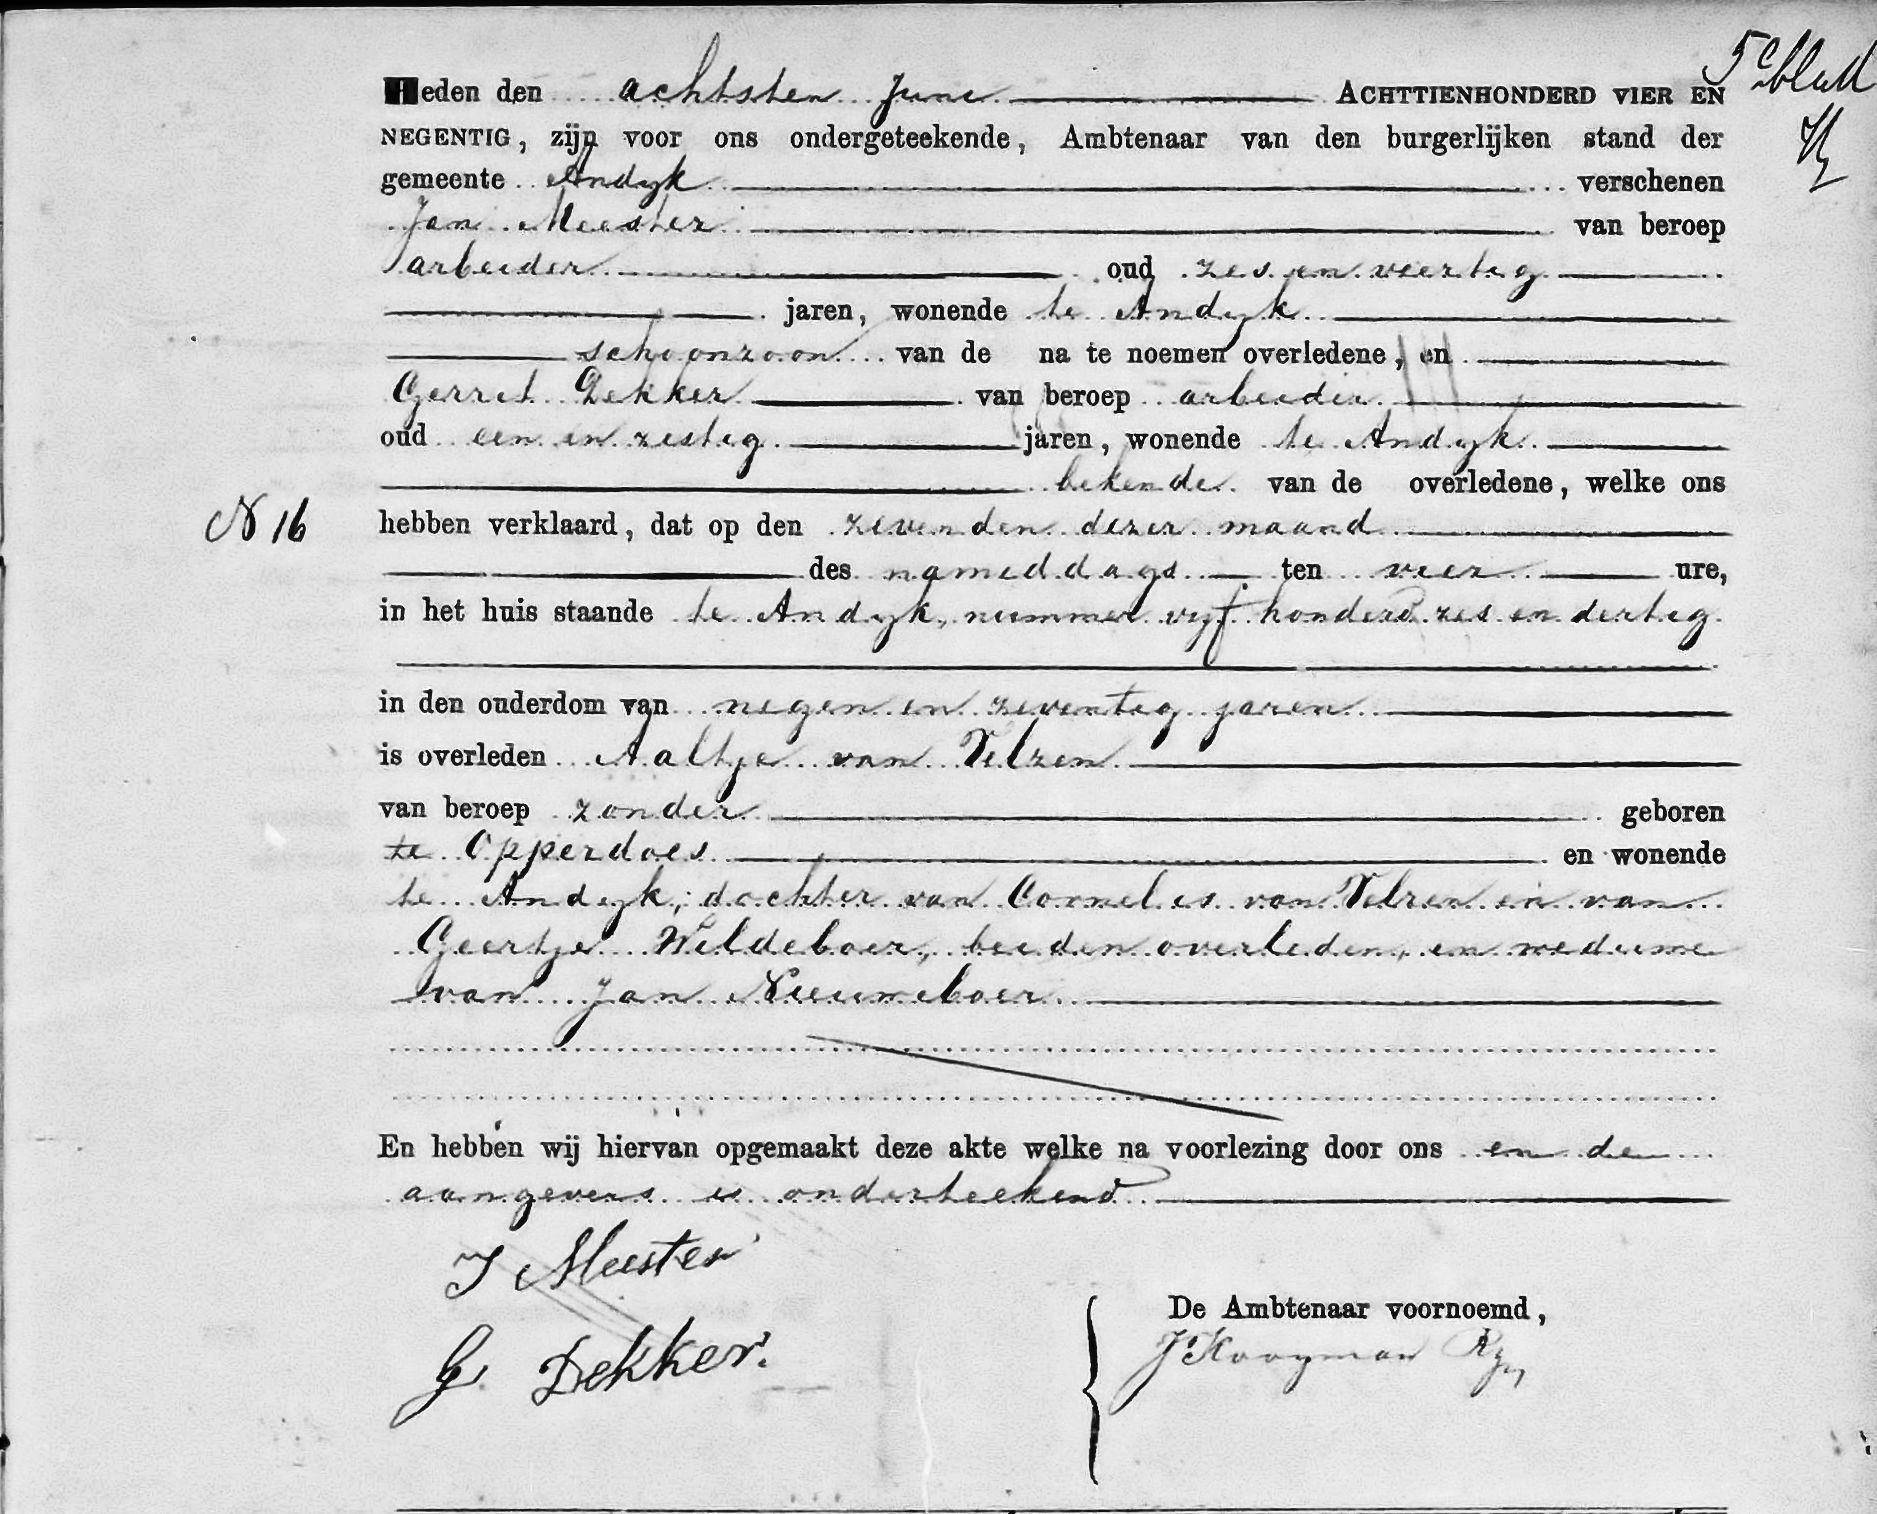 5e blad
Heden den achtsten Juni ACHTTIENHONDERD VIER EN
NEGENTIG, zijn voor ons ondergeteekende, Ambtenaar van den burgerlijken stand der
gemeente Andyk verschenen
Jan Meester van beroep
arbeider oud zes en veertig
jaren, wonende te Andyk
schoonzoon van de na te noemen overledene, en
Gerrit Dekker van beroep arbeider
oud een en zestig jaren, wonende te Andyk
bekende van de overledene, welke ons
N 16 hebben verklaard, dat op den zevenden dezer maand
des namiddags ten vier ure,
in het huis staande te Andyk, nummer vyf honderd zes en dertig
in den ouderdom van negen en zeventig jaren
is overleden Aaltje van Velzen
van beroep zonder geboren
te Opperdoes en wonende
te Andyk, dochter van Cornelis van Velzen en van
Geertje Wildeboer, beiden overleden, en weduwe
van Jan Nieuweboer
En hebben wij hiervan opgemaakt deze akte welke na voorlezing door ons en de
aangevers is onderteekend
J Meester
G. Dekker.
De Ambtenaar voornoemd,
J Kooyman Rzn